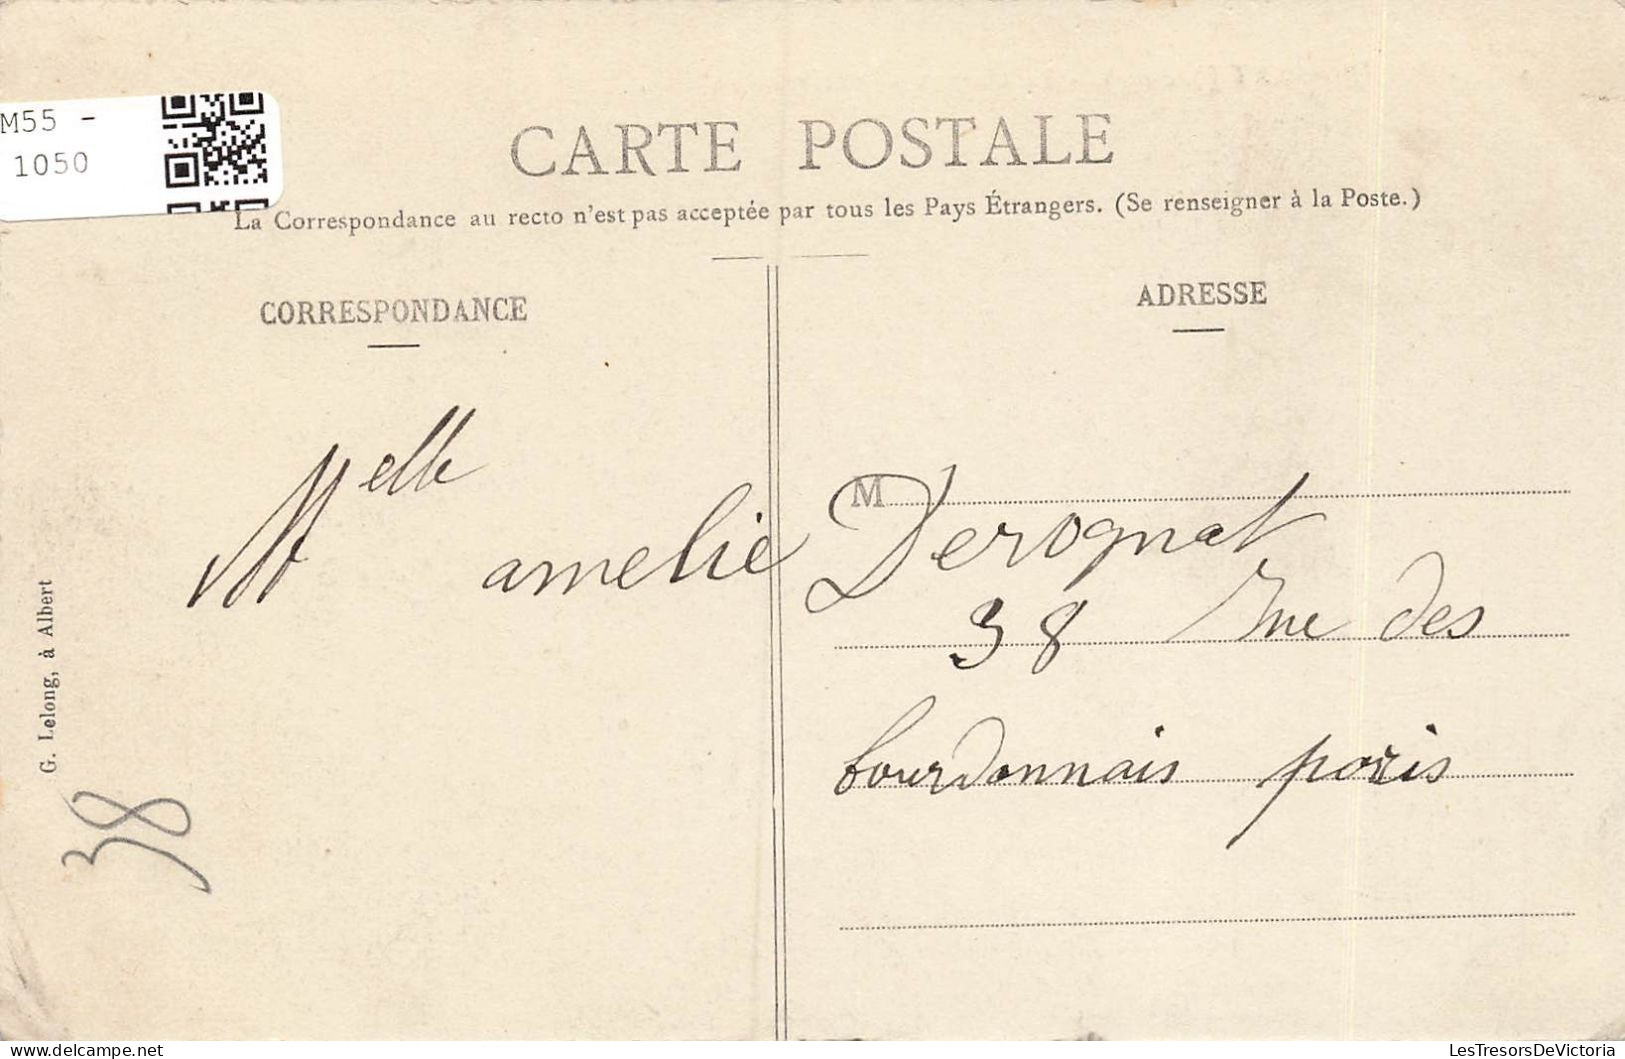 M55 -
1050
CARTE POSTALE
La Correspondance au recto n'est pas acceptée par tous les Pays Étrangers. (Se renseigner à la Poste.)
CORRESPONDANCE
ADRESSE
M
Melle amelie Derognat
38 rue des
bourdonnais paris
G. Lelong, à Albert
38
delcampe.net
LesTresorsDeVictoria